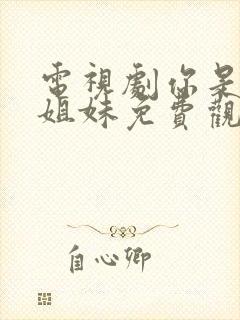 電視劇你是
姐妹免費觀
自心卿